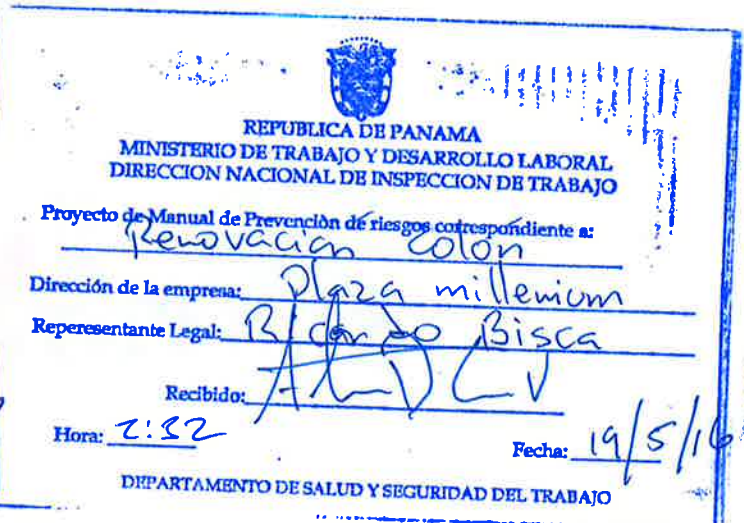 REPUBLICA DE PANAMA
MINISTERIO DE TRABAJO Y DESARROLLO LABORAL
DIRECCION NACIONAL DE INSPECCION DE TRABAJO
Proyecto de Manual de Prevención de riesgos correspondiente a:
Renovación Colón
Dirección de la empresa: Plaza millenium
Reperesentante Legal: Ricardo Bisca
Recibido:
Hora: 2:32 Fecha: 19/5/16
DEPARTAMENTO DE SALUD Y SEGURIDAD DEL TRABAJO